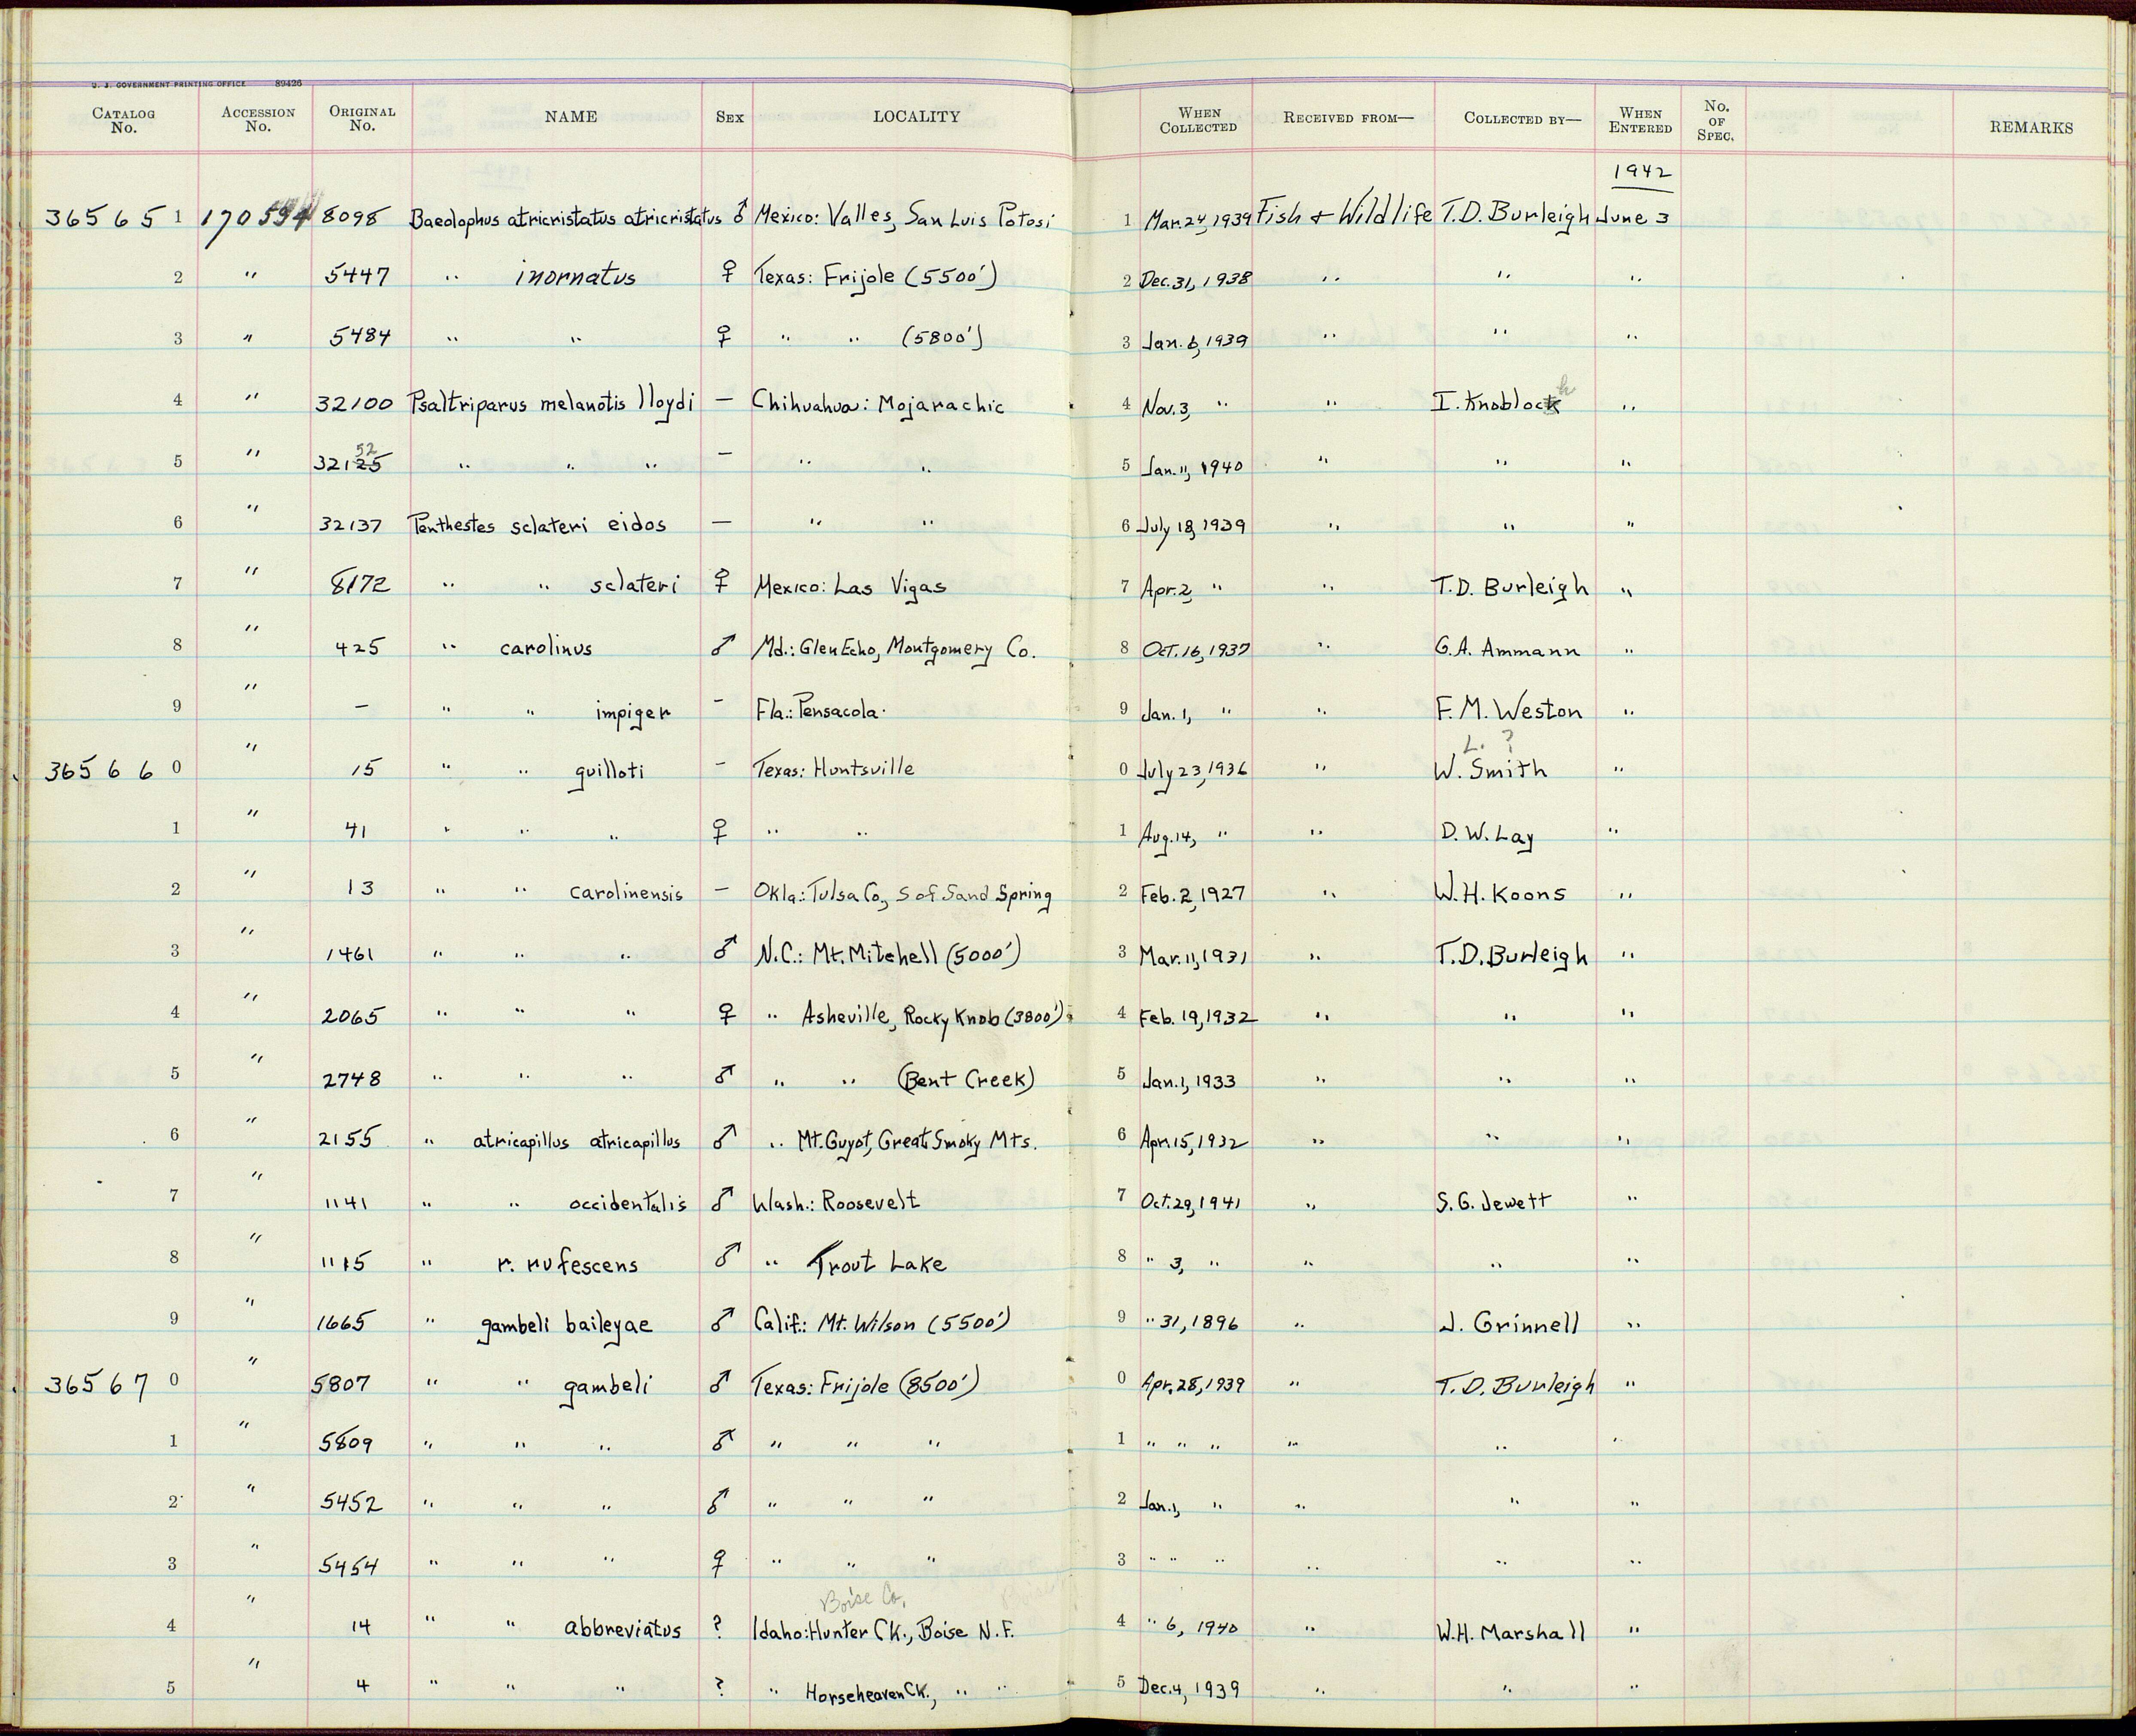 U. S. GOVERNMENT PRINTING OFFICE 89426
CATALOG No. ACCESSION No. ORIGINAL No. NAME SEX LOCALITY WHEN COLLECTED RECEIVED FROM— COLLECTED BY— WHEN ENTERED No. OF SPEC. REMARKS
1942
36565 1 170594 8098 Baeolophus atricristatus atricristatus ♂ Mexico: Valles, San Luis Potosi 1 Mar. 24, 1939 Fish & Wildlife T.D. Burleigh June 3
2 " 5447 " inornatus ♀ Texas: Frijole (5500') 2 Dec. 31, 1938 " " "
3 " 5484 " " ♀ " " (5800') 3 Jan. 6, 1939 " " "
4 " 32100 Psaltriparus melanotis lloydi — Chihuahua: Mojarachic 4 Nov. 3, " " I. Knoblock h "
52
5 " 32125 " " " — " " 5 Jan. 11, 1940 " " "
6 " 32137 Penthestes sclateri eidos — " " 6 July 18, 1939 " " "
7 " 8172 " " sclateri ♀ Mexico: Las Vigas 7 Apr. 2, " " T.D. Burleigh "
8 " 425 " carolinus ♂ Md.: Glen Echo, Montgomery Co. 8 Oct. 16, 1937 " G.A. Ammann "
9 " — " " impiger — Fla.: Pensacola. 9 Jan. 1, " " F.M. Weston "
L. ?
36566 0 " 15 " " guilloti — Texas: Huntsville 0 July 23, 1936 " W. Smith "
1 " 41 " " " ♀ " " 1 Aug. 14, " " D.W. Lay "
2 " 13 " " carolinensis — Okla.: Tulsa Co., S of Sand Spring 2 Feb. 2, 1927 " W.H. Koons "
3 " 1461 " " " ♂ N.C.: Mt. Mitchell (5000') 3 Mar. 11, 1931 " T.D. Burleigh "
4 " 2065 " " " ♀ " Asheville, Rocky Knob (3800') 4 Feb. 19, 1932 " " "
5 " 2748 " " " ♂ " " (Bent Creek) 5 Jan. 1, 1933 " " "
6 " 2155 " atricapillus atricapillus ♂ " Mt. Guyot, Great Smoky Mts. 6 Apr. 15, 1932 " " "
7 " 1141 " " occidentalis ♂ Wash.: Roosevelt 7 Oct. 29, 1941 " S.G. Jewett "
8 " 1115 " r. rufescens ♂ " Trout Lake 8 " 3, " " " "
9 " 1665 " gambeli baileyae ♂ Calif.: Mt. Wilson (5500') 9 " 31, 1896 " J. Grinnell "
36567 0 " 5807 " " gambeli ♂ Texas: Frijole (8500') 0 Apr. 28, 1939 " T.D. Burleigh "
1 " 5809 " " " ♂ " " " 1 " " " " " "
2 " 5452 " " " ♂ " " " 2 Jan. 1, " " " "
3 " 5454 " " " ♀ " " " 3 " " " " " "
Boise Co.
4 " 14 " " abbreviatus ? Idaho: Hunter CK., Boise N.F. 4 " 6, 1940 " W.H. Marshall "
5 " 4 " " " ? " Horseheaven CK., " " 5 Dec. 4, 1939 " " "